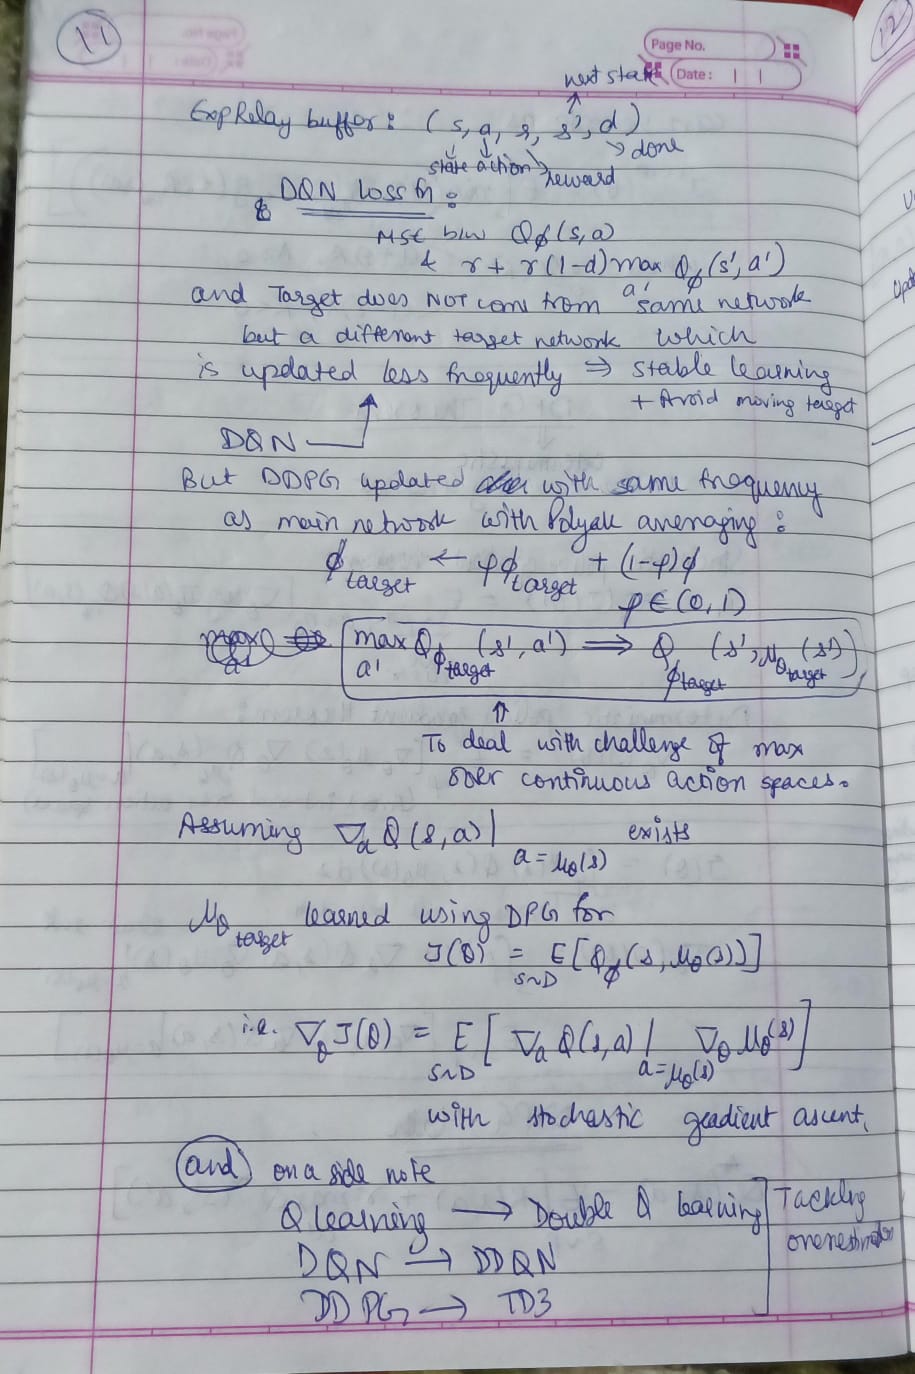 11
12
Page No.
Date: | |
next state
Exp Relay buffer: (s, a, r, s', d)
done
state action reward
DQN loss fn:
MSE b/w Qϕ(s,a)
& r + r(1-d) max Qϕ(s',a')
a'
and Target does NOT come from same network
but a different target network which
is updated less frequently ⇒ stable learning
+ Avoid moving target
DQN
But DDPG updated with same frequency
as main network with Polyak averaging:
ϕ_target ← ρϕ_target + (1-ρ)ϕ
ρ∈(0,1)
max_a' Qϕ_target (s',a') ⇒ Qϕ_target (s', μθ_target (s'))
⇑
To deal with challenge of max
over continuous action spaces.
Assuming ∇a Q(s,a)| a=μθ(s) exists
μθ_target learned using DPG for
J(θ) = E [Qϕ(s, μθ(s))]
s~D
i.e. ∇θ J(θ) = E [∇a Q(s,a)| ∇θ μθ(s)]
s~D a=μθ(s)
with stochastic gradient ascent.
and on a side note
Q learning → Double Q learning
DQN → DDQN
DDPG → TD3
Tackling
overestimation